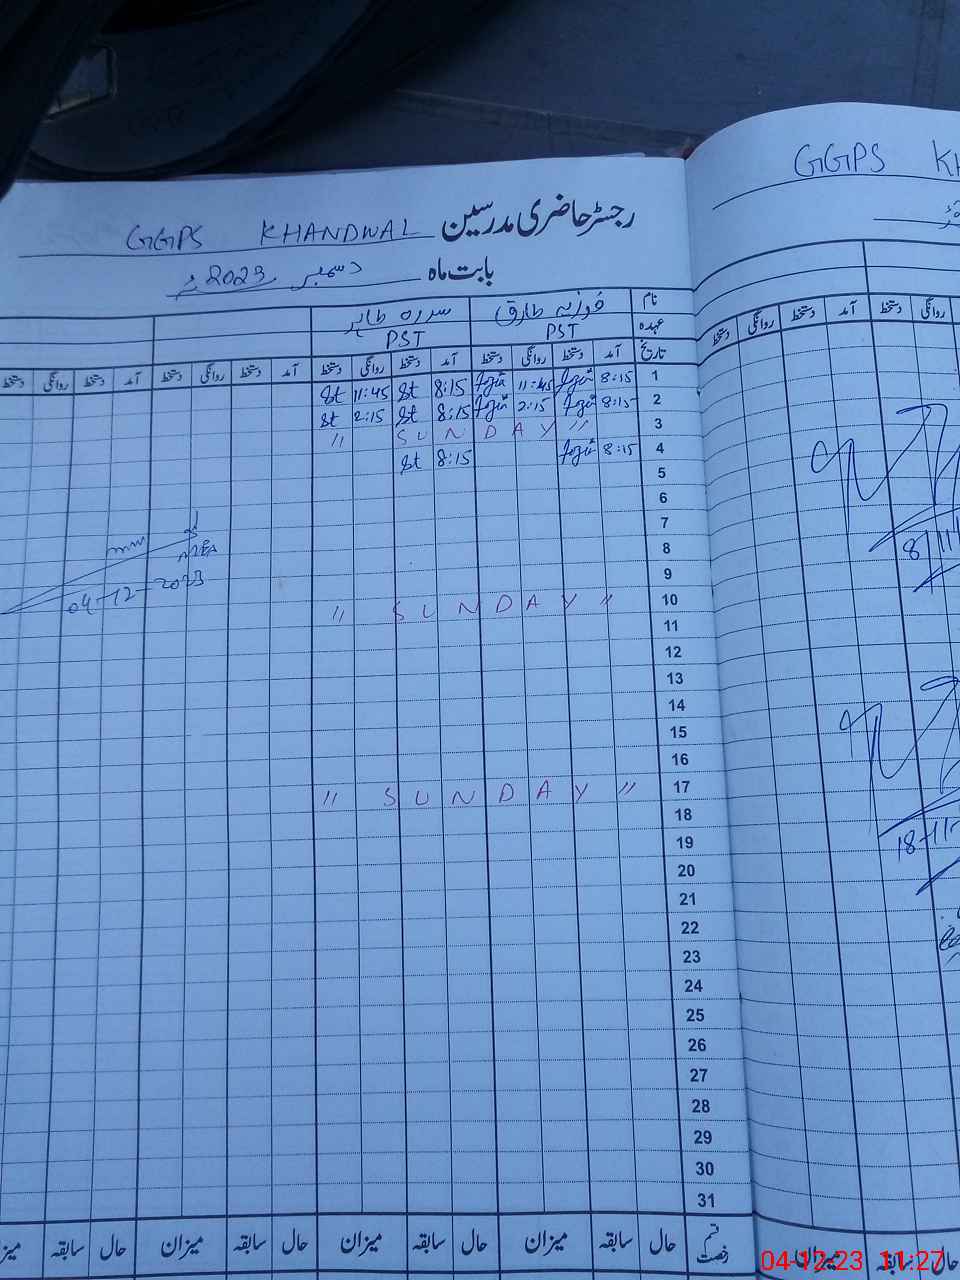 رجسٹر حاضری مدرسین GGPS KHANDWAL
بابت ماہ دسمبر 2023ء
نام فوزیہ طارق سدرہ طاہر
عہدہ PST PST
تاریخ آمد دستخط روانگی دستخط آمد دستخط روانگی دستخط آمد دستخط روانگی دستخط آمد دستخط روانگی دستخط
1 8:15 Fozia 11:45 Fozia 8:15 St 11:45 St
2 8:15 Fozia 2:15 Fozia 8:15 St 2:15 St
3 " SUNDAY "
4 8:15 Fozia 8:15 St
5
6
7
8 MEA
9 04-12-2023
10 " SUNDAY "
11
12
13
14
15
16
17 " SUNDAY "
18
19
20
21
22
23
24
25
26
27
28
29
30
31
قسم رخصت حال سابقہ میزان حال سابقہ میزان حال سابقہ میزان حال سابقہ
GGPS KH
آمد دستخط روانگی دستخط
روانگی دستخط
8/11
18-11-
حال سابقہ میزان
04-12-23 11:27